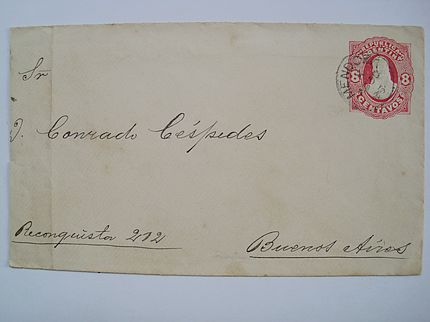 REPUBLICA
8 8
CENTAVOS
MENDOZA
Sr
D. Conrado Céspedes
Reconquista 212
Buenos Aires